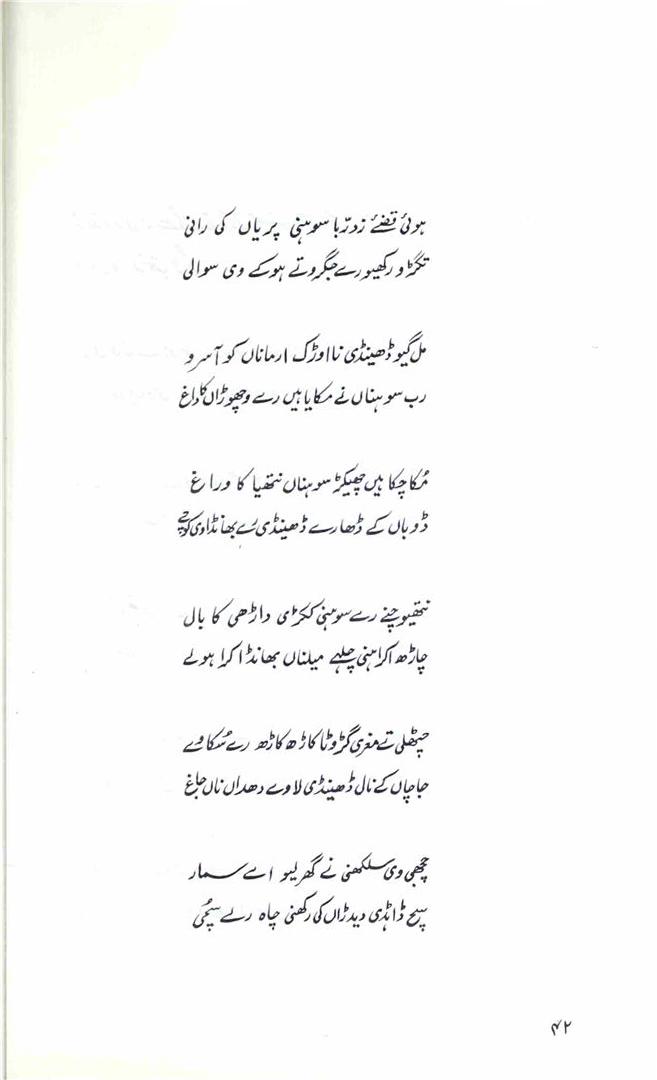 ہوئی قضئے زدرّبا سوہنی پریاں کی رانی
تگڑو رکھیو رے جگروتے ہوکے وی سوالی
مل گیو ڈھینڈی نا اوڑک ارماناں کو آسرو
رب سوہناں نے مکایا ہیں رے وچھوڑاں کا داغ
مُکا چکا ہیں چھیکڑ سوہناں نتھیا کا وراغ
ڈوباں کے ڈھارے ڈھینڈی رے بھانڈا وی کوچے
نتھیو چنے رے سوہنی ککڑی داڑھی کا بال
چاڑھ اکراہنی چلہے میلناں بھانڈا کرا ہولے
چٹھلی تے مغری گڑوٹا کاڑھ کاڑھ رے سُکاوے
جاچاں کے نال ڈھینڈی لاوے دھداں ناں جاغ
چجھی وی سلکھنی نے گھر لیو اے سمار
سیح ڈاہڈی دیدڑاں کی رکھنی چاہ رے سچُی
۴۲